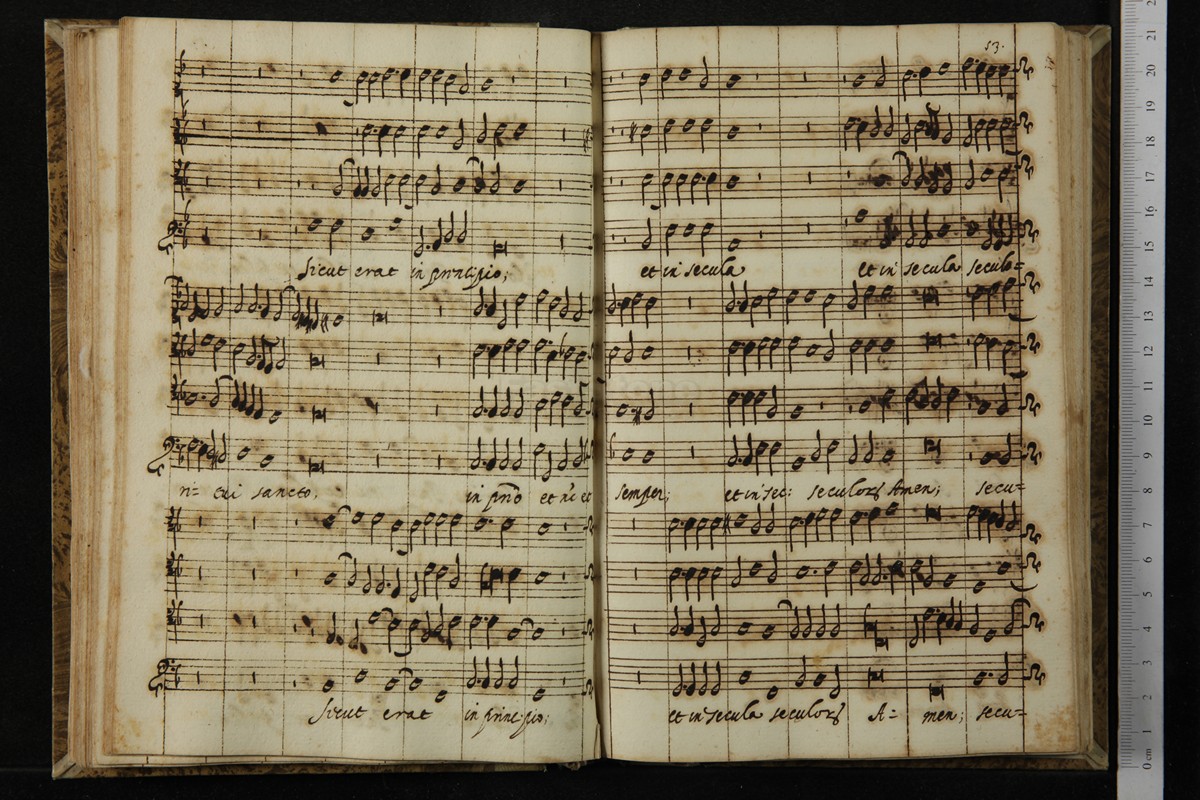 53.
Sicut erat in principio; et in secula et in secula seculo=
ri= tui sancto; in pñō et nc et semper; et in sec: seculorũ Amen; secu=
Sicut erat in principio; et in secula seculorũ A= men; secu=
21
20
19
18
17
16
15
14
13
12
11
10
9
8
7
6
5
4
3
2
1
0 cm